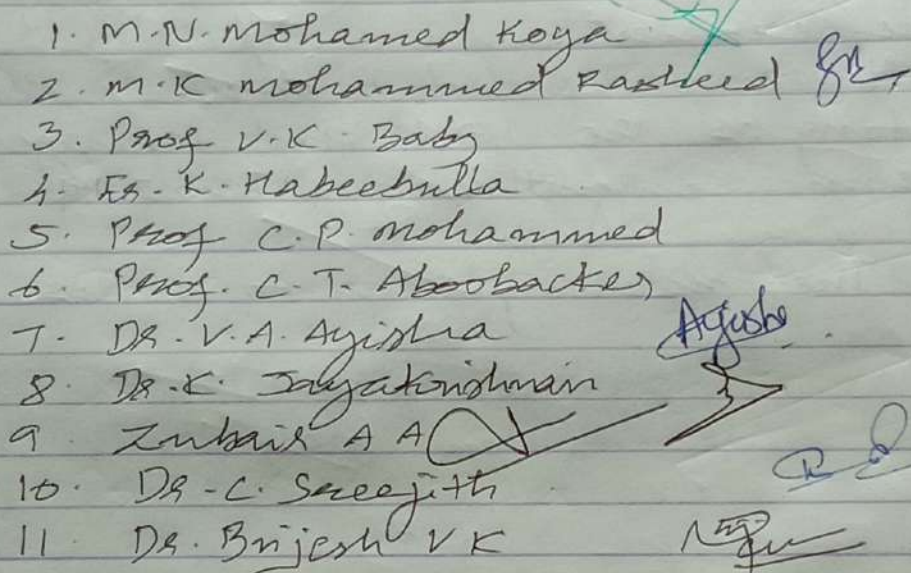 1. M.N. Mohamed Koya
2. M.K Mohammed Rasheed
3. Prof V.K. Baby
4. Er. K. Habeebulla
5. Prof C.P. Mohammed
6. Prof. C.T. Aboobacker
7. Dr. V.A. Ayisha Ayisha
8. Dr. K. Jayakrishnan
9. Zubair A A
10. Dr. C. Sreejith
11. Dr. Brijesh V K